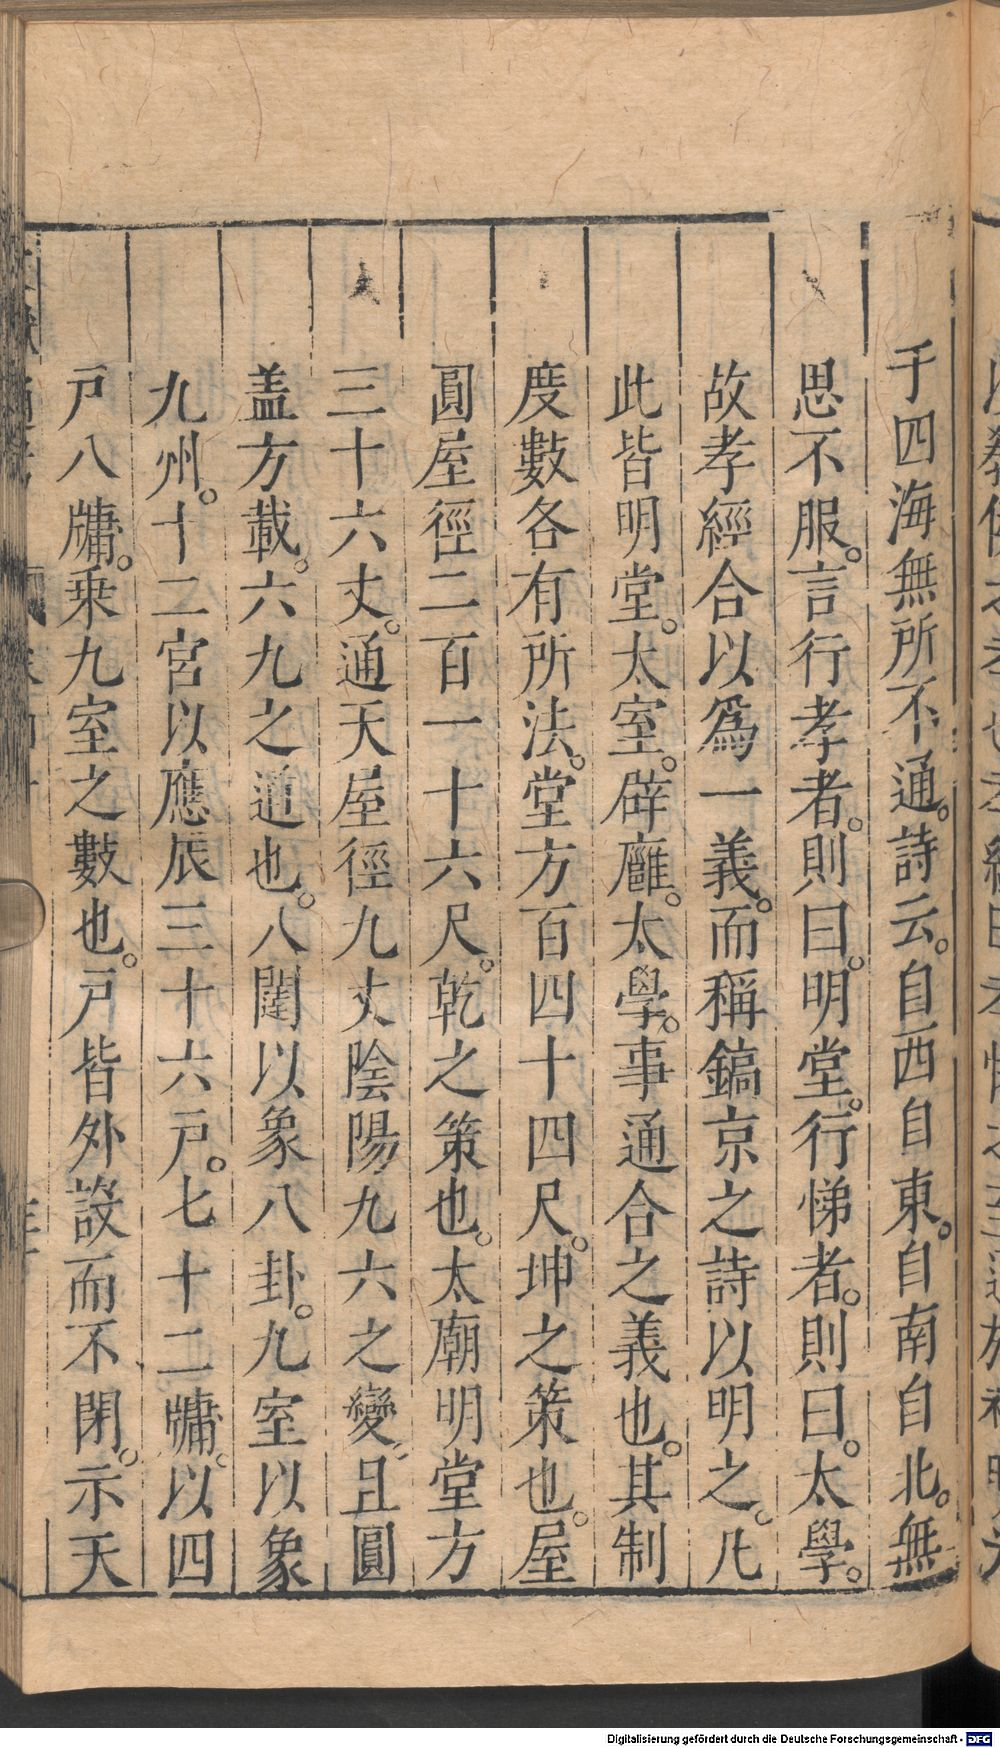 于四海無所不通。詩云。自西自東。自南自北。無
思不服。言行孝者。則曰。明堂。行悌者。則曰。太學。
故孝經合以爲一義。而稱鎬京之詩以明之。凡
此皆明堂。太室。辟廱。太學。事通合之義也。其制
度數各有所法。堂方百四十四尺。坤之策也。屋
圓屋徑二百一十六尺。乾之策也。太廟明堂方
三十六丈。通天屋徑九丈陰陽九六之變。且圓
盖方載。六九之道也。八闥以象八卦。九室以象
九州。十二宮以應辰三十六戸。七十二牗。以四
戸八牗。乗九室之數也。戸皆外設而不閉。示天
Digitalisierung gefördert durch die Deutsche Forschungsgemeinschaft - DFG